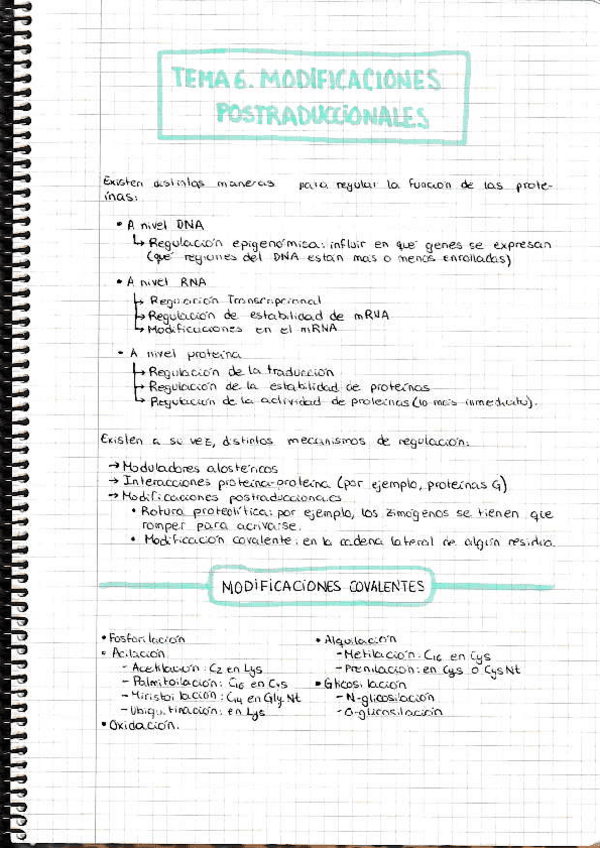 TEMA 6. MODIFICACIONES
POSTRADUCCIONALES
Existen distintas maneras para regular la función de las prote-
ínas:
• A nivel DNA
↳ Regulación epigenómica: influir en que genes se expresan
(que regiones del DNA están más o menos enrolladas)
• A nivel RNA
↳ Regulación Transcripcional
↳ Regulación de estabilidad de mRNA
↳ Modificaciones en el mRNA
• A nivel proteína
↳ Regulación de la traducción
↳ Regulación de la estabilidad de proteínas
↳ Regulación de la actividad de proteínas (lo más inmediato).
Existen a su vez, distintos mecanismos de regulación:
→ Moduladores alostéricos
→ Interacciones proteína-proteína (por ejemplo, proteínas G)
→ Modificaciones postraduccionales
• Rotura proteolítica: por ejemplo, los zimógenos se tienen que
romper para activarse.
• Modificación covalente: en la cadena lateral de algún residuo.
MODIFICACIONES COVALENTES
• Fosforilación
• Acilación
- Acetilación: C2 en Lys
- Palmitoilación: C16 en Cys
- Miristoilación: C14 en Gly Nt
- Ubiquitinación: en Lys
• Oxidación.
• Alquilación
- Metilación: C16 en Cys
- Prenilación: en Cys o Cys Nt
• Glicosilación
- N-glicosilación
- O-glicosilación